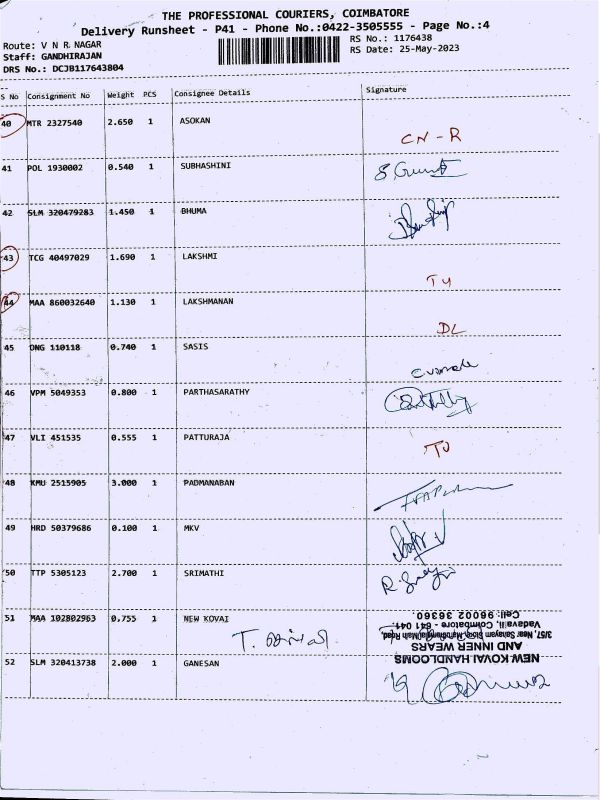 THE PROFESSIONAL COURIERS, COIMBATORE
Delivery Runsheet - P41 - Phone No.:0422-3505555 - Page No.:4
Route: V N R NAGAR
RS No.: 1176438
Staff: GANDHIRAJAN
RS Date: 25-May-2023
DRS No.: DCJB117643804
S No Consignment No Weight PCS Consignee Details Signature
40 MTR 2327540 2.650 1 ASOKAN
CN-R
41 POL 1930002 0.540 1 SUBHASHINI
42 SLM 320479283 1.450 1 BHUMA
43 TCG 40497029 1.690 1 LAKSHMI
44 MAA 860032640 1.130 1 LAKSHMANAN
DL
45 ONG 110118 0.740 1 SASIS
46 VPM 5049353 0.800 1 PARTHASARATHY
47 VLI 451535 0.555 1 PATTURAJA
48 KMU 2515905 3.000 1 PADMANABAN
49 HRD 50379686 0.100 1 MKV
50 TTP 5305123 2.700 1 SRIMATHI
51 MAA 102802963 0.755 1 NEW KOVAI
NEW KOVAI HANDLOOMS
AND INNER WEARS
Vadavalli, Coimbatore - 641 041.
Cell: 96002 36360
52 SLM 320413738 2.000 1 GANESAN